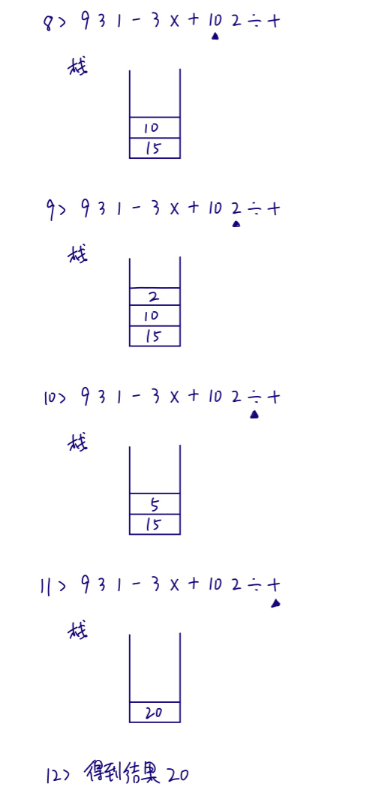 8> 9 3 1 - 3 × + 10 2 ÷ +
栈
10
15
9> 9 3 1 - 3 × + 10 2 ÷ +
栈
2
10
15
10> 9 3 1 - 3 × + 10 2 ÷ +
栈
5
15
11> 9 3 1 - 3 × + 10 2 ÷ +
栈
20
12> 得到结果 20